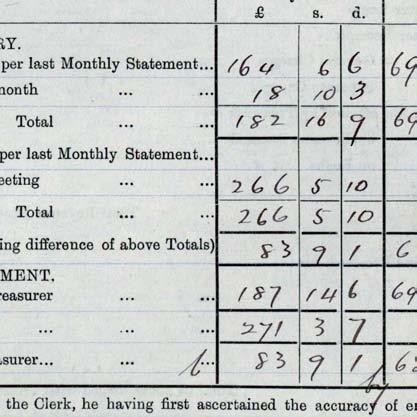 £ s. d.
RY.
per last Monthly Statement... 164 6 6 69
month ... ... 18 10 3
Total ... ... 182 16 9 69
per last Monthly Statement...
eeting ... ... 266 5 10
Total ... ... 266 5 10
ing difference of above Totals) 83 9 1 6
MENT.
reasurer ... ... 187 14 6 69
... ... 271 3 7
asurer... ... ... 83 9 1 68
the Clerk, he having first ascertained the accuracy of en